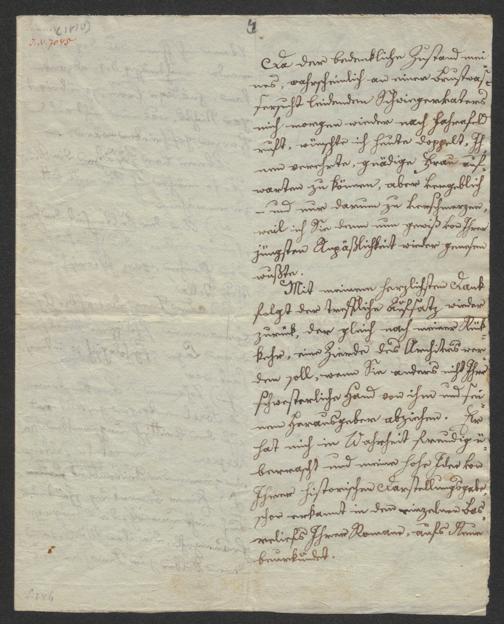 4
(1817)
I.N. 7045
Da der bedenkliche Zustand mei
nes, wahrscheinlich an einer Brustwas-
sersucht leidenden Schwiegervaters
mich morgen wieder nach Hainfeld
ruft, wünschte ich heute doppelt, Ih-
nen verehrte, gnädige Frau auf-
warten zu können, aber vergeblich
– und nur darum zu verschmerzen,
weil ich Sie denn nun gewiß von Ihrer
jüngsten Unpäßlichkeit wieder genesen
wüßte.
Mit meinem herzlichsten Dank
folgt der treffliche Aufsatz wieder
zurück, der gleich nach meiner Rük-
kehr, eine Zierde des Archives wer
den soll, wenn Sie anders nicht Ihre
schwesterliche Hand von ihm und sei-
nem Herausgeber abziehen. Er
hat mich in Wahrheit freudig ü-
berrascht und meine hohe Idee von
Ihrer historischen Darstellungsgabe,
schon erkannt in den einzelnen Bas-
reliefs Ihrer Romane, aufs Neue
beurkundet.